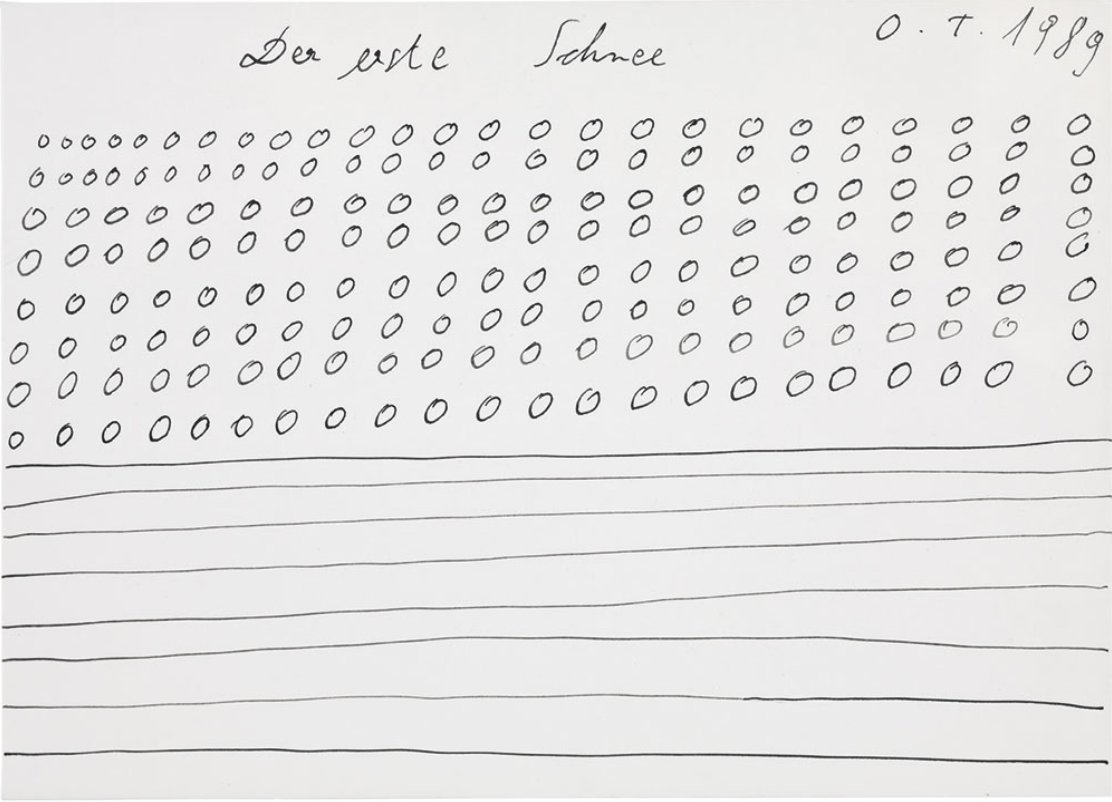 Der erste Schnee
O. T. 1989